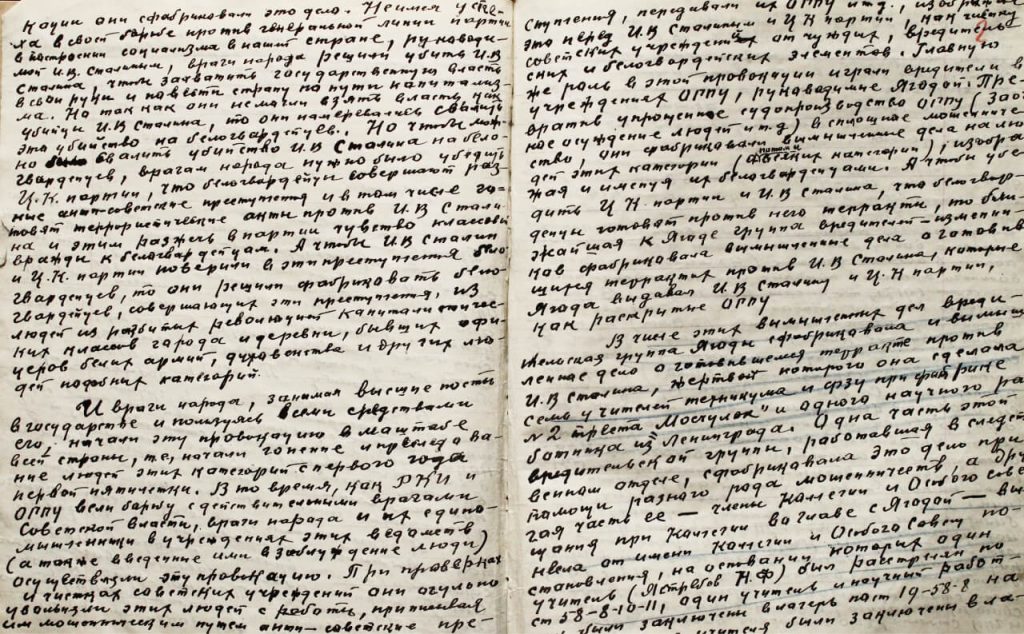 кации они сфабриковали это дело. Не имея успе-
ха в своей борьбе против генеральной линии партии
в построении социализма в нашей стране, руководи-
мой И.В. Сталиным, враги народа решили убить И.В.
Сталина, чтобы захватить государственную власть
в свои руки и повести страну по пути капитализ-
ма. Но так как они не могли взять власть как
убийцы И.В. Сталина, то они намеревались свалить
это убийство на белогвардейцев. Но чтобы мож-
но было свалить убийство И.В. Сталина на бело-
гвардейцев, врагам народа нужно было убедить
Ц.К. партии, что белогвардейцы совершают раз-
ные анти-советские преступления и в том числе го-
товят террористические акты против И.В. Стали-
на и этим разжечь в партии чувство классовой
вражды к белогвардейцам. А чтобы И.В. Сталин
и Ц.К. партии поверили в эти преступления бело-
гвардейцев, то они решили фабриковать бело-
гвардейцев, совершающих эти преступления, из
людей из разбитых революцией капиталистичес-
ких классов города и деревни, бывших офи-
церов белых армий, духовенства и других лю-
дей подобных категорий.
И враги народа, занимая высшие посты
в государстве и пользуясь всеми средствами
его, начали эту провокацию в масштабе
всей страны, т.е. начали гонение и преследова-
ние людей этих категорий с первого года
первой пятилетки. В то время, как РКИ и
ОГПУ вели борьбу с действительными врагами
Советской власти, враги народа и их едино-
мышленники в учреждениях этих ведомств
(а также введенные ими в заблуждение люди)
осуществляли эту провокацию. При проверках
и чистках советских учреждений они огульно
увольняли этих людей с работы, приписывая
им мошенническим путем анти-советские пре-
ступления, передавали их ОГПУ и т.д., изображая
это перед И.В. Сталиным и Ц.К. партии, как чистку
советских учреждений от чуждых, вредитель-
ских и белогвардейских элементов. Главную
же роль в этой провокации играли вредители в
учреждениях ОГПУ, руководимые Ягодой. Пре-
вратив упрощенное судопроизводство ОГПУ (заоч-
ное осуждение людей и т.д) в сплошное мошенниче-
ство, они фабриковали вымышленные дела на лю-
дей этих категории (потом всяких категории), изобра-
жая и именуя их белогвардейцами. А чтобы убе-
дить Ц.К. партии и И.В. Сталина, что белогвар-
дейцы готовят против него терракты, то бли-
жайшая к Ягоде группа вредителей-изменни-
ков фабриковала вымышленные дела о готовив-
щихся террактах против И.В. Сталина, которые
Ягода выдавал И.В. Сталину и Ц.К. партии,
как раскрытие ОГПУ
В числе этих вымышленных дел вреди-
тельская группа Ягоды сфабриковала и вымыш-
ленное дело о готовившемся терракте против
И.В. Сталина, жертвой которого она сделала
семь учителей техникума и фзу при фабрике
№2 треста "Мосчулок" и одного научного ра-
ботника из Ленинграда. Одна часть этой
вредительской группы, работавшая в следст-
венном отделе, сфабриковала это дело при
помощи разного рода мошенничеств, а дру-
гая часть ее — члены Коллегии и Особого сове-
щания при Коллегии во главе с Ягодой — вы-
несла от имени Коллегии и Особого Совещ по-
становления, на основании которых один
учитель (Н.Ф) был расстрелян по
ст 58-8-10-11, один учитель и научный работ-
были заключены в лагерь по ст 19-58-8 на
учителя были заключены в ла-